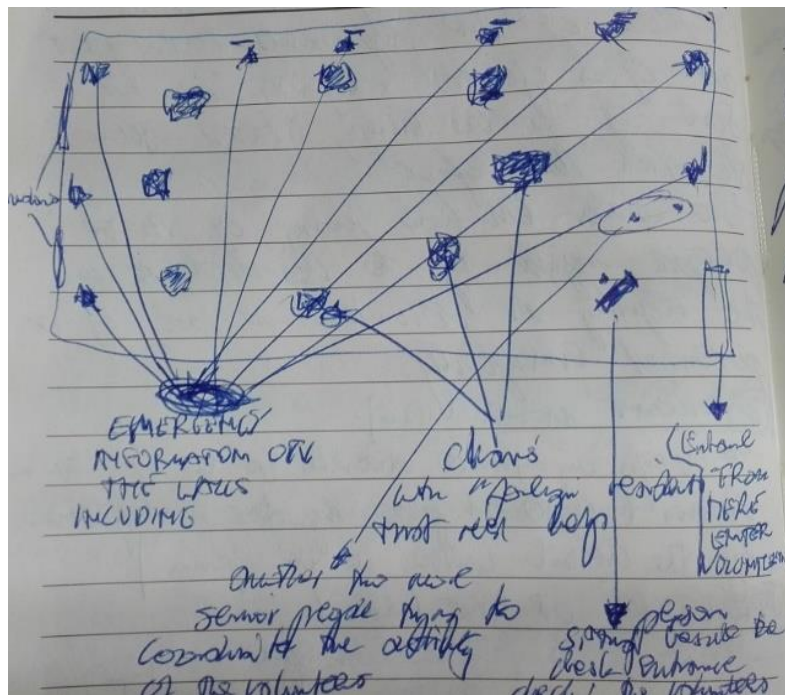 EMERGENCY
INFORMATION ON
THE WALLS
INCUDING
Chairs
with "foreign resident
that need help
(Entrance
FROM
HERE
ENTER
another two more
senior people trying to
coordinate the activity
of the volunteers
person
sitting beside the
desk entrance
the volunteers